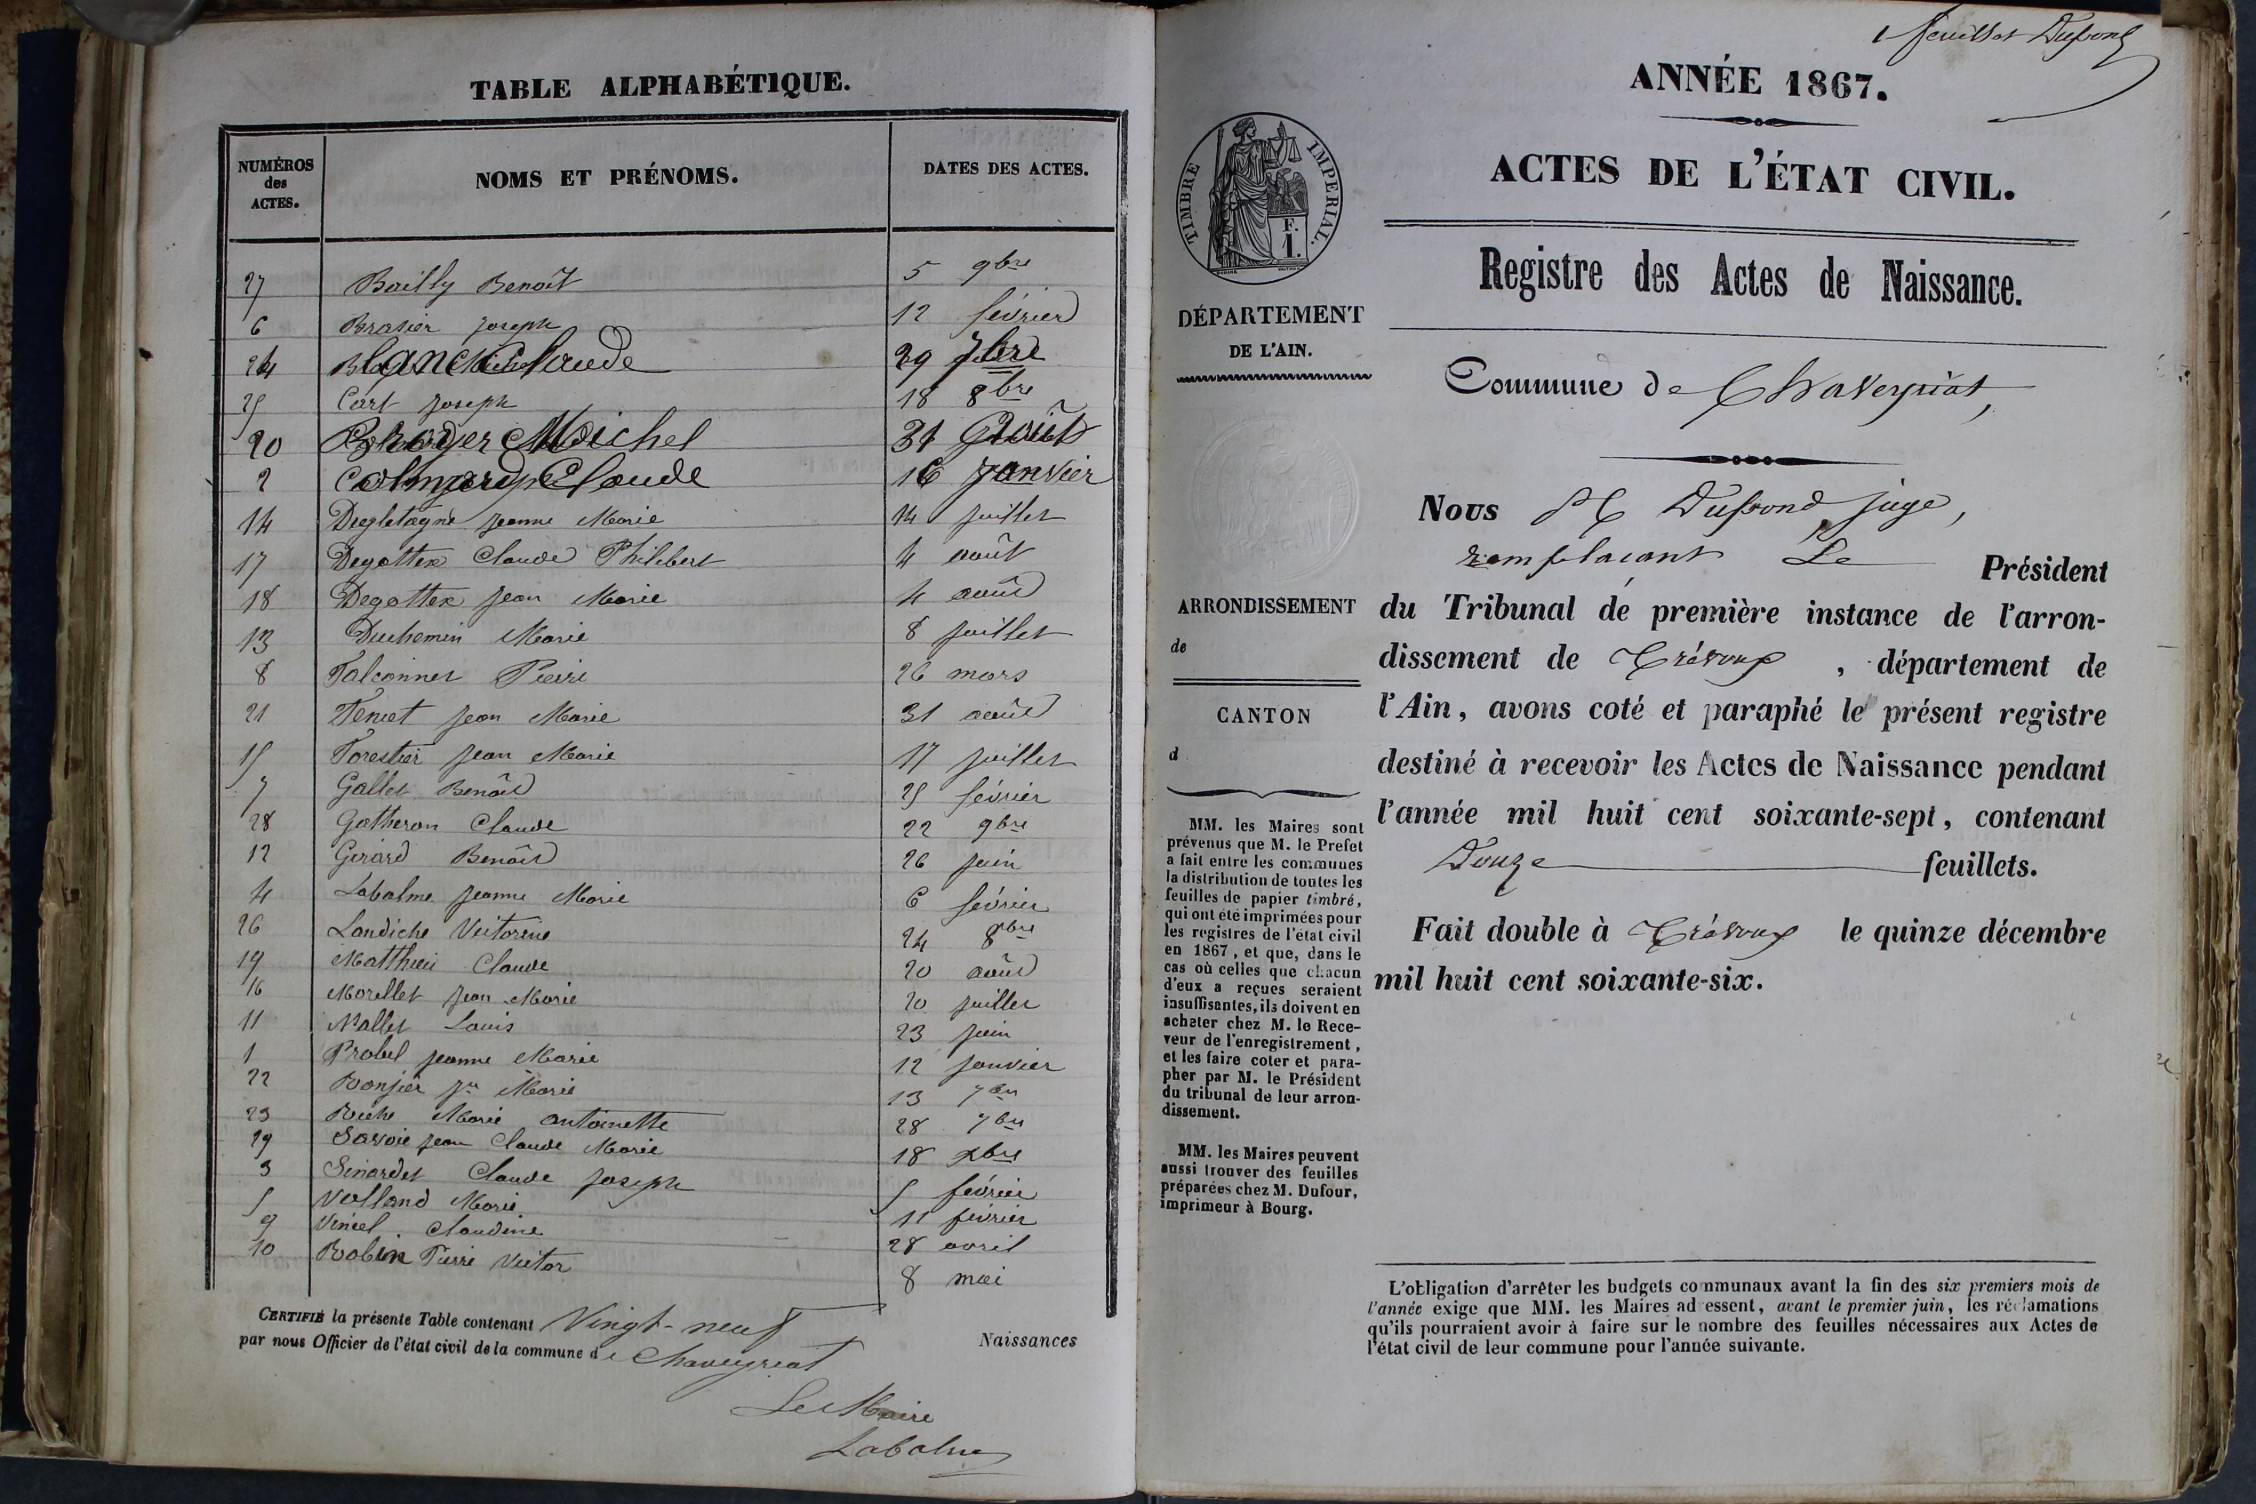 TABLE ALPHABÉTIQUE.
NUMÉROS des ACTES.
NOMS ET PRÉNOMS.
DATES DES ACTES.
27 Bailly Benoît 5 9bre
6 Brasier Joseph 12 février
24 Blanc Claude 29 7bre
25 Cart Joseph 18 8bre
20 Michel 31 Août
2 Claude 16 Janvier
14 Degletagne Jeanne Marie 14 juillet
17 Degottex Claude Philibert 4 août
18 Degottex Jean Marie 4 août
13 Duchemin Marie 8 juillet
8 Falconnet Pierre 26 mars
21 Ferret Jean Marie 31 août
15 Forestier Jean Marie 17 juillet
7 Gallet Benoît 25 février
28 Gatheron Claude 22 9bre
12 Girard Benoît 26 juin
4 Labalme Jeanne Marie 6 février
26 Landiche Victorine 24 8bre
19 Matthieu Claude 20 août
16 Morellet Jean Marie 20 juillet
11 Nallet Louis 23 juin
1 Probel Jeanne Marie 12 janvier
22 Ronjer Jn Marie 13 7bre
23 Ruche Marie Antoinette 28 7bre
29 Savoie Jean Claude Marie 18 xbre
3 Sinardet Claude Joseph 5 février
5 Volland Marie 11 février
9 Claudine 28 avril
10 Robin Pierre Victor 8 mai
CERTIFIÉ la présente Table contenant Vingt-neuf Naissances
par nous Officier de l'état civil de la commune de Chaveyriat
Le Maire
Labalme
1 feuillet Dupond
ANNÉE 1867.
ACTES DE L'ÉTAT CIVIL.
TIMBRE IMPERIAL.
F.
1.
Registre des Actes de Naissance.
DÉPARTEMENT
DE L'AIN.
Commune de Chaveyriat,
Nous Dupond juge,
remplaçant Le Président
ARRONDISSEMENT
de
du Tribunal de première instance de l'arron-
dissement de Trévoux, département de
l'Ain, avons coté et paraphé le présent registre
destiné à recevoir les Actes de Naissance pendant
l'année mil huit cent soixante-sept, contenant
Douze feuillets.
Fait double à Trévoux le quinze décembre
mil huit cent soixante-six.
CANTON
d
MM. les Maires sont
prévenus que M. le Prefet
a fait entre les communes
la distribution de toutes les
feuilles de papier timbré,
qui ont été imprimées pour
les registres de l'état civil
en 1867, et que, dans le
cas où celles que chacun
d'eux a reçues seraient
insuffisantes, ils doivent en
acheter chez M. le Rece-
veur de l'enregistrement,
et les faire coter et para-
pher par M. le Président
du tribunal de leur arron-
dissement.
MM. les Maires peuvent
aussi trouver des feuilles
préparées chez M. Dufour,
imprimeur à Bourg.
L'obligation d'arrêter les budgets communaux avant la fin des six premiers mois de
l'année exige que MM. les Maires adressent, avant le premier juin, les réclamations
qu'ils pourraient avoir à faire sur le nombre des feuilles nécessaires aux Actes de
l'état civil de leur commune pour l'année suivante.